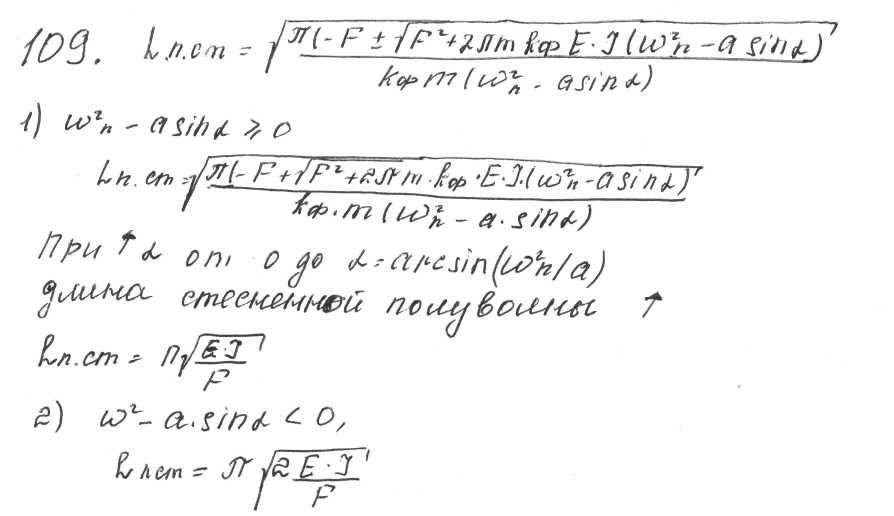 109. Lп.ст = √(π(-F ± √(F² + 2πm kф E·J (ω²n - a sinα)) / kф m (ω²n - a sin α))
1) ω²n - a sin α ⩾ 0
Lп.ст = √(π(-F + √(F² + 2πm·kф·E·J·(ω²n - a sin α)) / kф·m (ω²n - a·sin α))
При ↑ α от 0 до α = arcsin(ω²n/a)
длина стесненной полуволны ↑
Lп.ст = π√(E·J / F)
2) ω² - a·sin α < 0,
Lпст = π √(2 E·J / F)